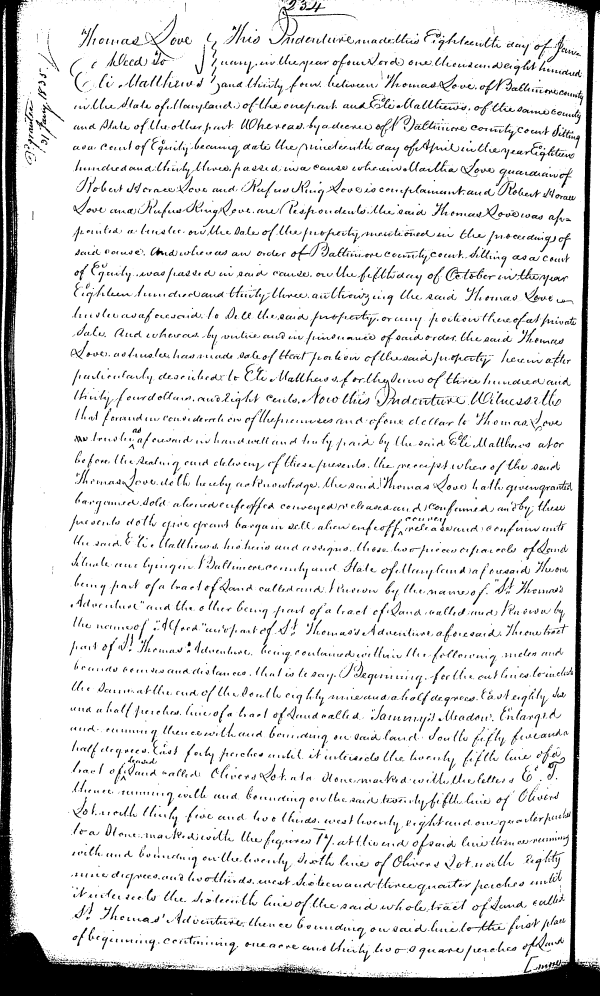 234
Thomas Love } This Indenture made this Eighteenth day of Janu
Deed To } uary, in the year of our Lord one thousand eight hundred
Eli Matthews } and thirty four between Thomas Love, of Baltimore county
in the State of Maryland of the one part and Eli Matthews, of the same county
and State of the other part Whereas by a decree of Baltimore county court Sitting
as a court of Equity bearing date the nineteenth day of April in the year Eighteen
hundred and thirty three, passed in a cause wherein Martha Love guardian of
Robert Horace Love and Rufus King Love is complainant and Robert Horace
Love and Rufus King Love are Respondents the said Thomas Love was ap-
pointed a trustee on the sale of the property mentioned in the proceedings of
said cause. And whereas an order of Baltimore county court Sitting as a court
of Equity was passed in said cause on the fifth day of October in the year
Eighteen hundred and thirty three authorizing the said Thomas Love
trustee as aforesaid to Sell the said property or any portion thereof at private
Sale. And whereas by virtue and in pursuance of said order the said Thomas
Love as trustee has made sale of that portion of the said property herein after
particularly described to Eli Matthews for the Sum of three hundred and
thirty four dollars and Eight cents. Now this Indenture Witnesseth
that for and in consideration of the premises and of one dollar to Thomas Love
trustee as aforesaid in hand well and truly paid by the said Eli Matthews at or
before the sealing and delivery of these presents the receipt whereof the said
Thomas Love doth hereby acknowledge the said Thomas Love hath given granted
bargained sold aliened enfeoffed conveyed released and confirmed and by these
presents doth give grant bargain sell alien enfeoff convey release and confirm unto
the said Eli Matthews his heirs and assigns those two pieces or parcels of Land
situate and lying in Baltimore county and State of Maryland aforesaid The one
being part of a tract of Land called and Known by the name of "St. Thomas's
Adventure" and the other being part of a tract of Land called and Known by
the name of "Alford" part of St. Thomas's Adventure aforesaid. The one tract
part of St. Thomas's Adventure being contained within the following metes and
bounds courses and distances, that is to say, Beginning for the out lines to include
the Same at the end of the South eighty nine and a half degrees East eighty Six
and a half perches line of a tract of Land called "Sammy's Meadow" Enlarged
and running thence with and bounding on said land South fifty five and a
half degrees East forty perches until it intersects the twenty fifth line of a
tract of Land called Olivers Lot at a Stone marked with the letters E. T.
thence running with and bounding on the said twenty fifth line of Olivers
Lot north thirty five and two thirds west twenty eight and one quarter perches
to a Stone marked with the figures 17 at the end of said line thence running
with and bounding on the twenty Sixth line of Olivers Lot north Eighty
nine degrees and two thirds west Sixteen and three quarter perches until
it intersects the Sixteenth line of the said whole tract of Land called
St. Thomas' Adventure thence bounding on said line to the first place
of beginning containing one acre and thirty two square perches of Land